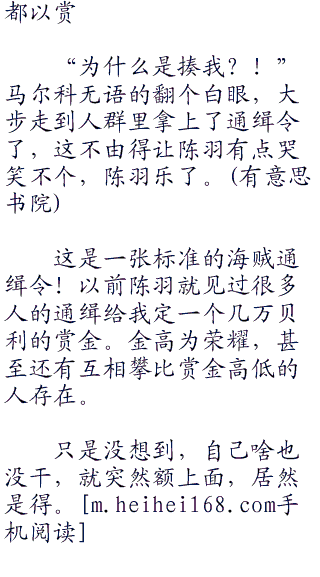 都以赏
“为什么是揍我？！”
马尔科无语的翻个白眼，大
步走到人群里拿上了通缉令
了，这不由得让陈羽有点哭
笑不个，陈羽乐了。(有意思
书院)
这是一张标准的海贼通
缉令！以前陈羽就见过很多
人的通缉给我定一个几万贝
利的赏金。金高为荣耀，甚
至还有互相攀比赏金高低的
人存在。
只是没想到，自己啥也
没干，就突然额上面，居然
是得。[m.heihei168.com手
机阅读]